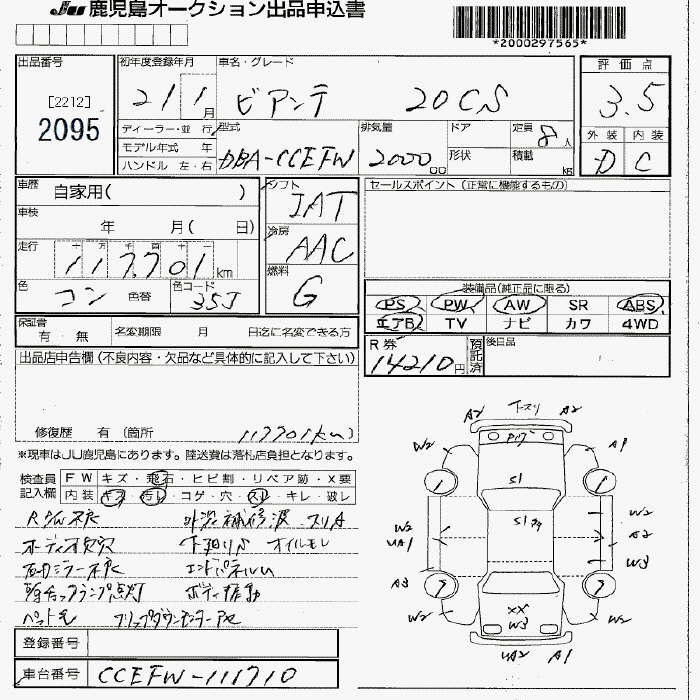 JU 鹿児島オークション出品申込書
*2000297565*
出品番号
[2212]
2095
初年度登録年月
21 1月
車名・グレード
ビアンテ 20CS
評価点
3.5
外装 内装
D C
ディーラー・並行
モデル年式 年
ハンドル 左・右
型式
DBA-CCEFW
排気量
2000
ドア
形状
定員 8人
積載 kg
車歴 自家用( )
車検
年 月( 日)
走行 十 万 千 百 十 一
117,701km
色
コン 色替
色コード
35J
シフト
IAT
冷房
AAC
燃料
G
セールスポイント (正常に機能するもの)
装備品(純正品に限る)
PS PW AW SR ABS
エアB TV ナビ カワ 4WD
保証書
有・無
名変期限 月 日迄に名変できる方
R券
14210円
預託済
後日品
出品店申告欄 (不良内容・欠品など具体的に記入して下さい)
修復歴 有 (箇所 117701km)
※現車はJU鹿児島にあります。陸送費は落札店負担となります。
検査員記入欄
FW キズ・飛石・ヒビ割・リペア跡・X要
内装 キズ・汚レ・コゲ・穴・スレ・キレ・破レ
外装補修波・スリA
オーディオ欠穴 下廻りサ オイルモレ
エンドパネルU
ペット毛 フリップダウンモニターAセ
登録番号
車台番号 CCEFW-111710
A2 A2
W2 A1
S1
W2 A2
W3
A3
W2 XX W2
W3
UA2 A1